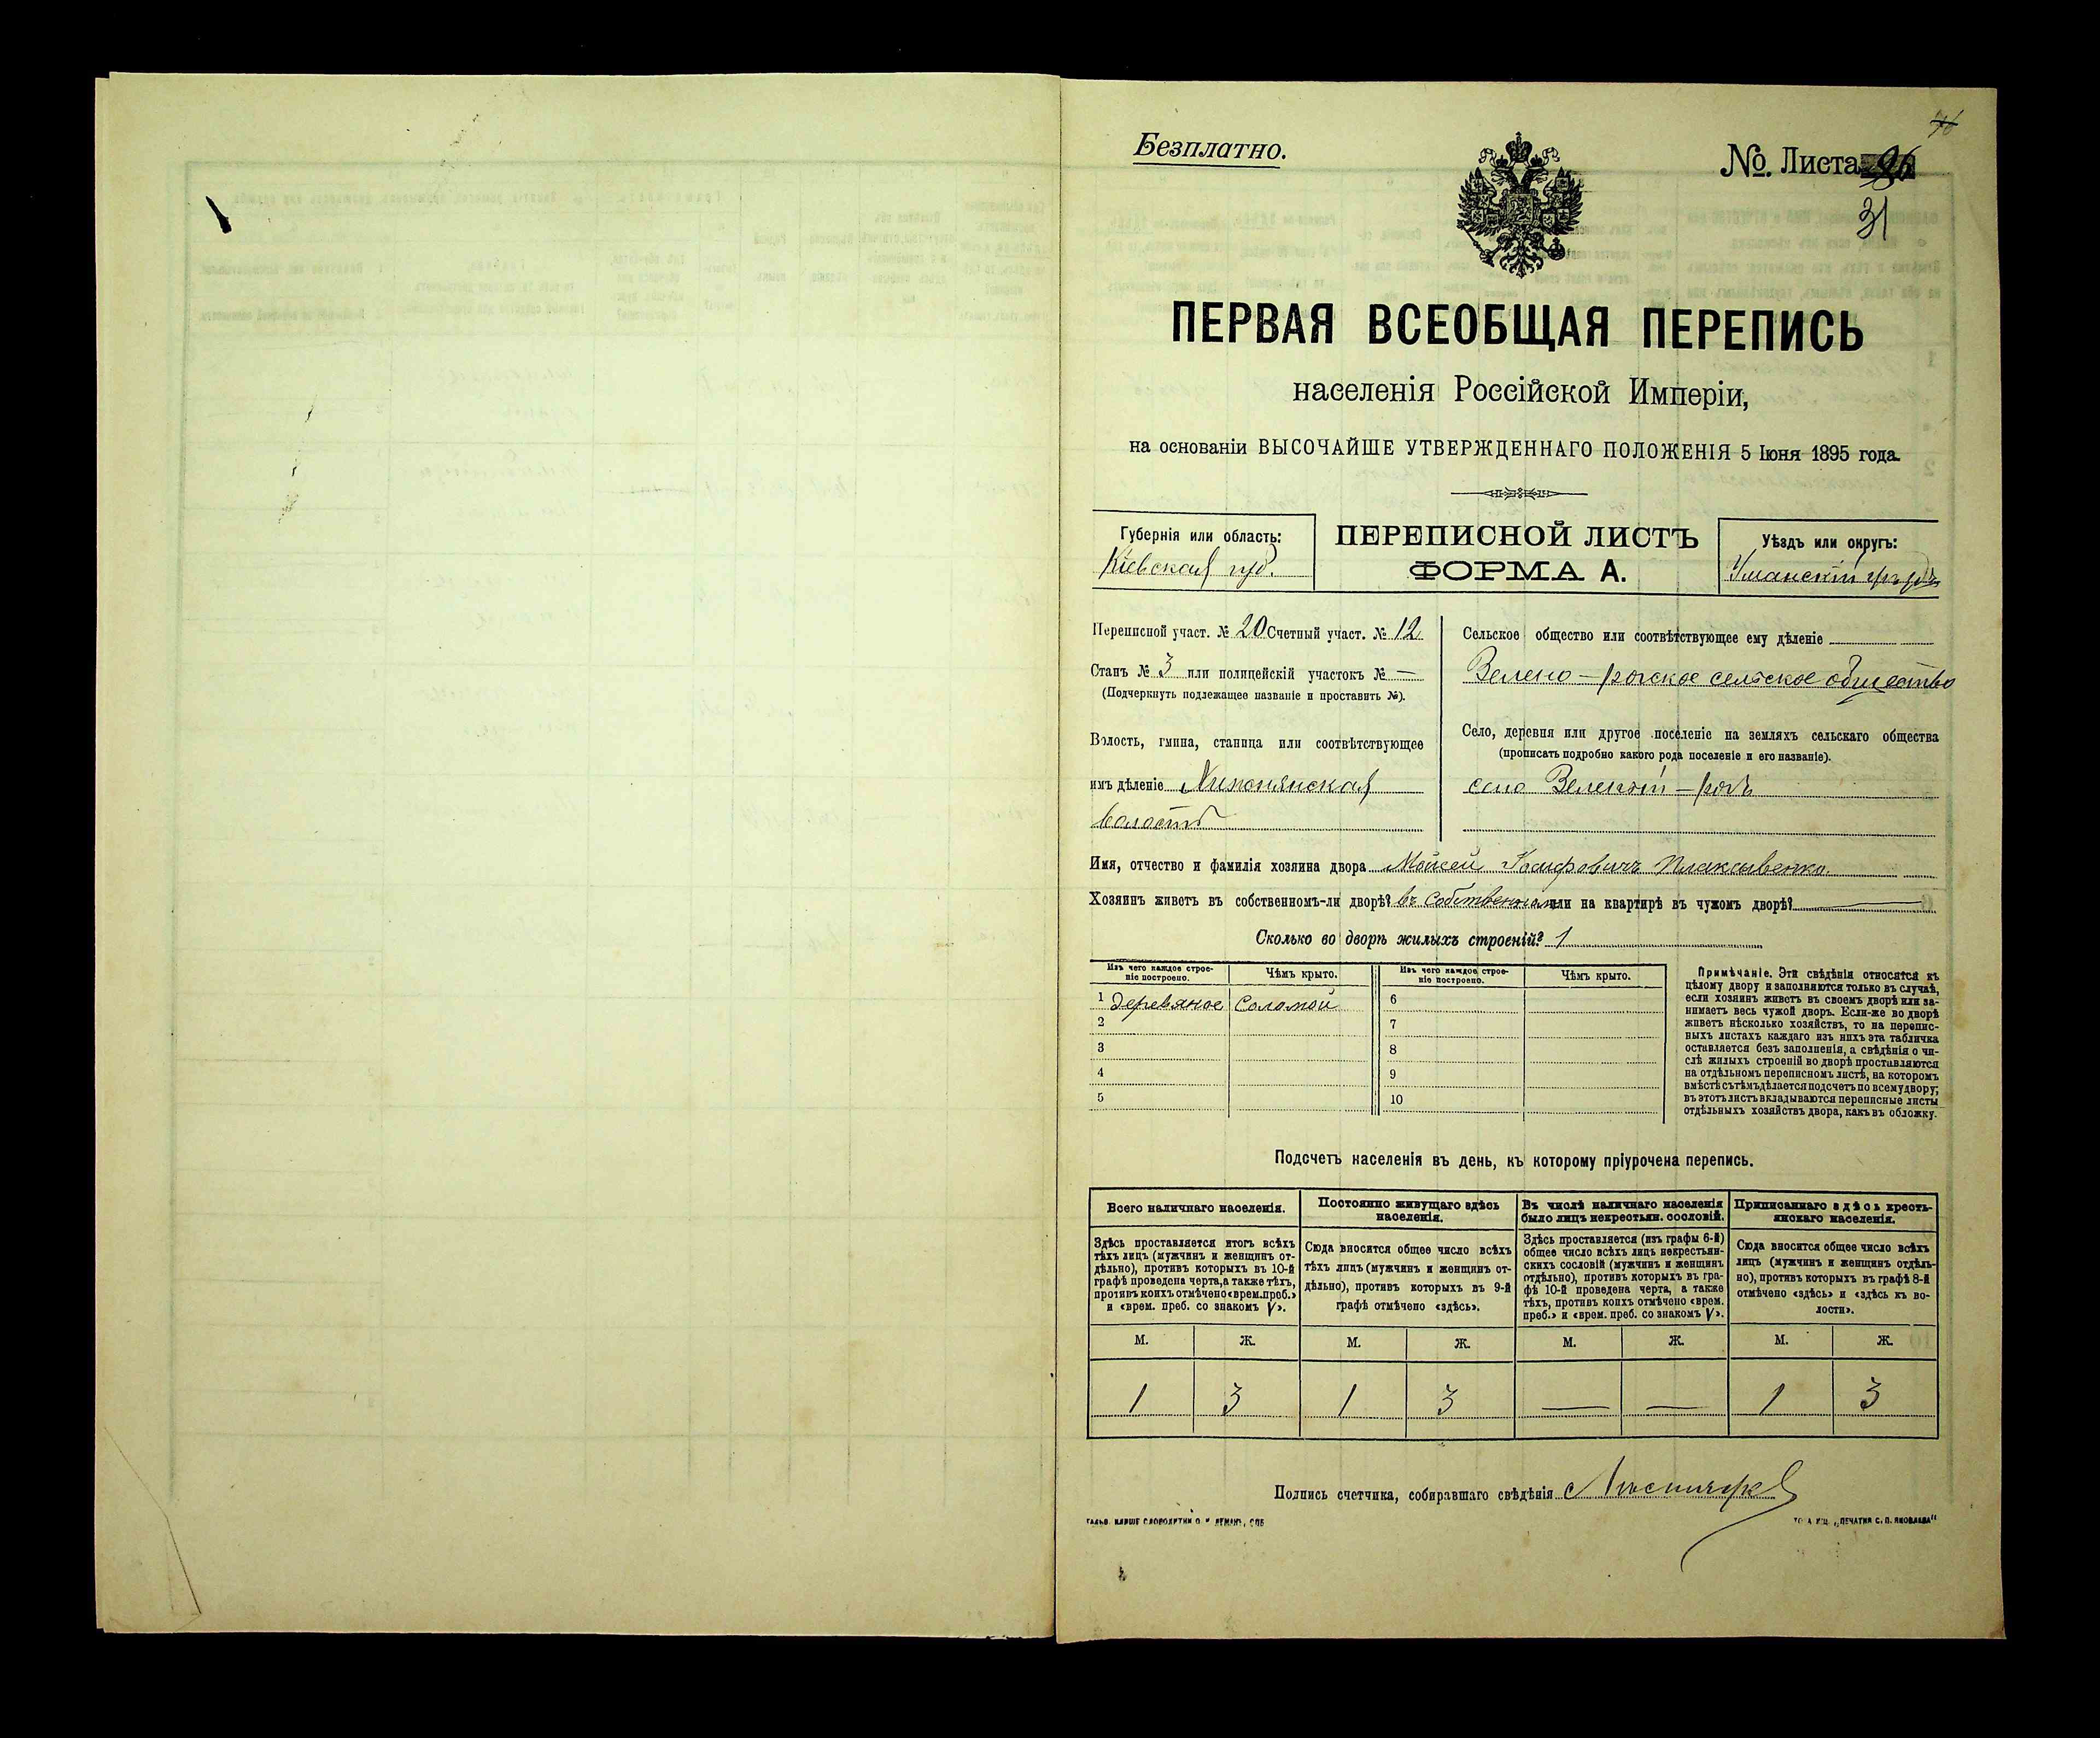 76
Безплатно.
№. Листа 86
31
ПЕРВАЯ ВСЕОБЩАЯ ПЕРЕПИСЬ
населенія Россійской Имперіи,
на основаніи ВЫСОЧАЙШЕ УТВЕРЖДЕННАГО ПОЛОЖЕНІЯ 5 Іюня 1895 года.
Губернія или область:
Кіевская губ.
ПЕРЕПИСНОЙ ЛИСТЪ
ФОРМА А.
Уѣздъ или округъ:
Уманскій уѣздъ
Переписной участ. № 20 Счетный участ. № 12
Станъ № 3 или полицейскій участокъ № —
(Подчеркнуть подлежащее названіе и проставить №).
Волость, гмина, станица или соотвѣтствующее
имъ дѣленіе
волость
Сельское общество или соотвѣтствующее ему дѣленіе
Зелено-рогское сельское общество
Село, деревня или другое поселеніе на земляхъ сельскаго общества
(прописать подробно какого рода поселеніе и его названіе).
село Зеленый-рогъ
Имя, отчество и фамилія хозяина двора Мойсей Іосифовичъ Плаксивенко
Хозяинъ живетъ въ собственномъ-ли дворѣ? въ собственномъ или на квартирѣ въ чужомъ дворѣ? —
Сколько во дворѣ жилыхъ строеній? 1
Изъ чего каждое строе-
ніе построено.
Чѣмъ крыто.
Изъ чего каждое строе-
ніе построено.
Чѣмъ крыто.
1 деревяное соломой 6
2 7
3 8
4 9
5 10
Примѣчаніе. Эти свѣдѣнія относятся къ
цѣлому двору и заполняются только въ случаѣ,
если хозяинъ живетъ въ своемъ дворѣ или за-
нимаетъ весь чужой дворъ. Если-же во дворѣ
живетъ нѣсколько хозяйствъ, то на перепис-
ныхъ листахъ каждаго изъ нихъ эта табличка
оставляется безъ заполненія, а свѣдѣнія о чи-
слѣ жилыхъ строеній во дворѣ проставляются
на отдѣльномъ переписномъ листѣ, на которомъ
вмѣстѣ съ тѣмъ дѣлается подсчетъ по всему двору;
въ этотъ листъ вкладываются переписные листы
отдѣльныхъ хозяйствъ двора, какъ въ обложку.
Подсчетъ населенія въ день, къ которому пріурочена перепись.
Всего наличнаго населенія.
Здѣсь проставляется итогъ всѣхъ
тѣхъ лицъ (мужчинъ и женщинъ от-
дѣльно), противъ которыхъ въ 10-й
графѣ проведена черта, а также тѣхъ,
противъ коихъ отмѣчено «врем. преб.»
и «врем. преб. со знакомъ V».
Постоянно живущаго здѣсь
населенія.
Сюда вносится общее число всѣхъ
тѣхъ лицъ (мужчинъ и женщинъ от-
дѣльно), противъ которыхъ въ 9-й
графѣ отмѣчено «здѣсь».
Въ числѣ наличнаго населенія
было лицъ некрестьян. сословій.
Здѣсь проставляется (изъ графы 6-й)
общее число всѣхъ лицъ некрестьян-
скихъ сословій (мужчинъ и женщинъ
отдѣльно), противъ которыхъ въ гра-
фѣ 10-й проведена черта, а также
тѣхъ, противъ коихъ отмѣчено «врем.
преб.» и «врем. преб. со знакомъ V».
Приписаннаго здѣсь кресть-
янскаго населенія.
Сюда вносится общее число всѣхъ
лицъ (мужчинъ и женщинъ отдѣль-
но), противъ которыхъ въ графѣ 8-й
отмѣчено «здѣсь» и «здѣсь къ во-
лости».
М. Ж. М. Ж. М. Ж. М. Ж.
1 3 1 3 — — 1 3
Подпись счетчика, собиравшаго свѣдѣнія